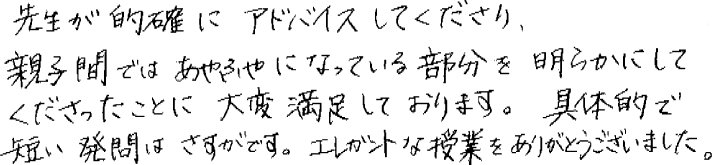 先生が的確に アドバイスしてくださり、
親子間ではあやふやになっている部分を明らかにして
くださったことに大変満足しております。具体的で
短い発問はさすがです。エレガントな授業をありがとうございました。